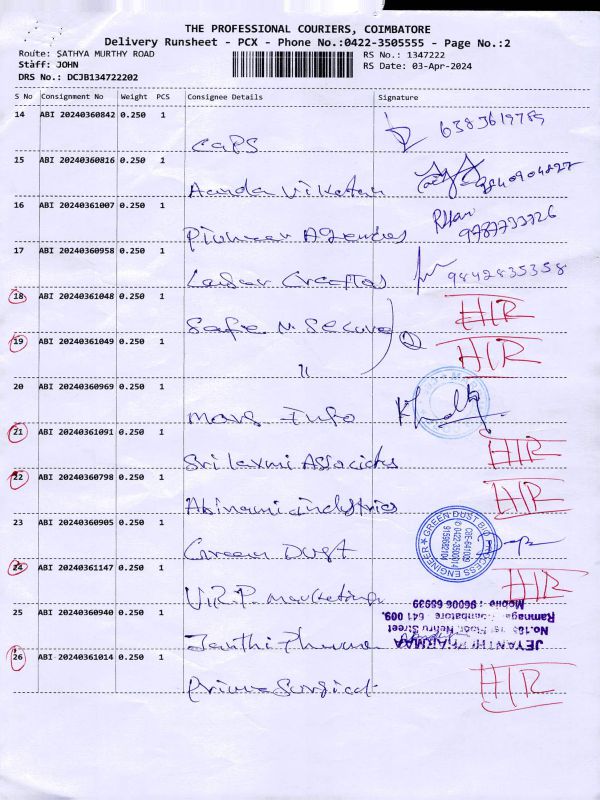 THE PROFESSIONAL COURIERS, COIMBATORE
Delivery Runsheet - PCX - Phone No.:0422-3505555 - Page No.:2
Route: SATHYA MURTHY ROAD
RS No.: 1347222
Staff: JOHN
RS Date: 03-Apr-2024
DRS No.: DCJB134722202
S No Consignment No Weight PCS Consignee Details Signature
14 ABI 20240360842 0.250 1
caps
15 ABI 20240360816 0.250 1
Aanda Vikatan
16 ABI 20240361007 0.250 1
9787733326
Pioneer Agencies
17 ABI 20240360958 0.250 1
9842835358
Laser Creations
18 ABI 20240361048 0.250 1 HIR
Safe N Secure
19 ABI 20240361049 0.250 1 HIR
"
20 ABI 20240360969 0.250 1
Mars Info
21 ABI 20240361091 0.250 1 HIR
Sri Laxmi Associates
22 ABI 20240360798 0.250 1 HIR
Abirami industries
23 ABI 20240360905 0.250 1
GREEN DUST BIO PROCESS ENGINEER
CBE-641009
0422-3500014
9159582104
Green Dust
24 ABI 20240361147 0.250 1 HIR
V.R.P. marketing
25 ABI 20240360940 0.250 1
JEYANTHI PHARMAA
Nehru Street
Ramnagar, Coimbatore 641 009.
Mobile : 96006 65939
Janthi Pharma
26 ABI 20240361014 0.250 1 HIR
Prime Surgical